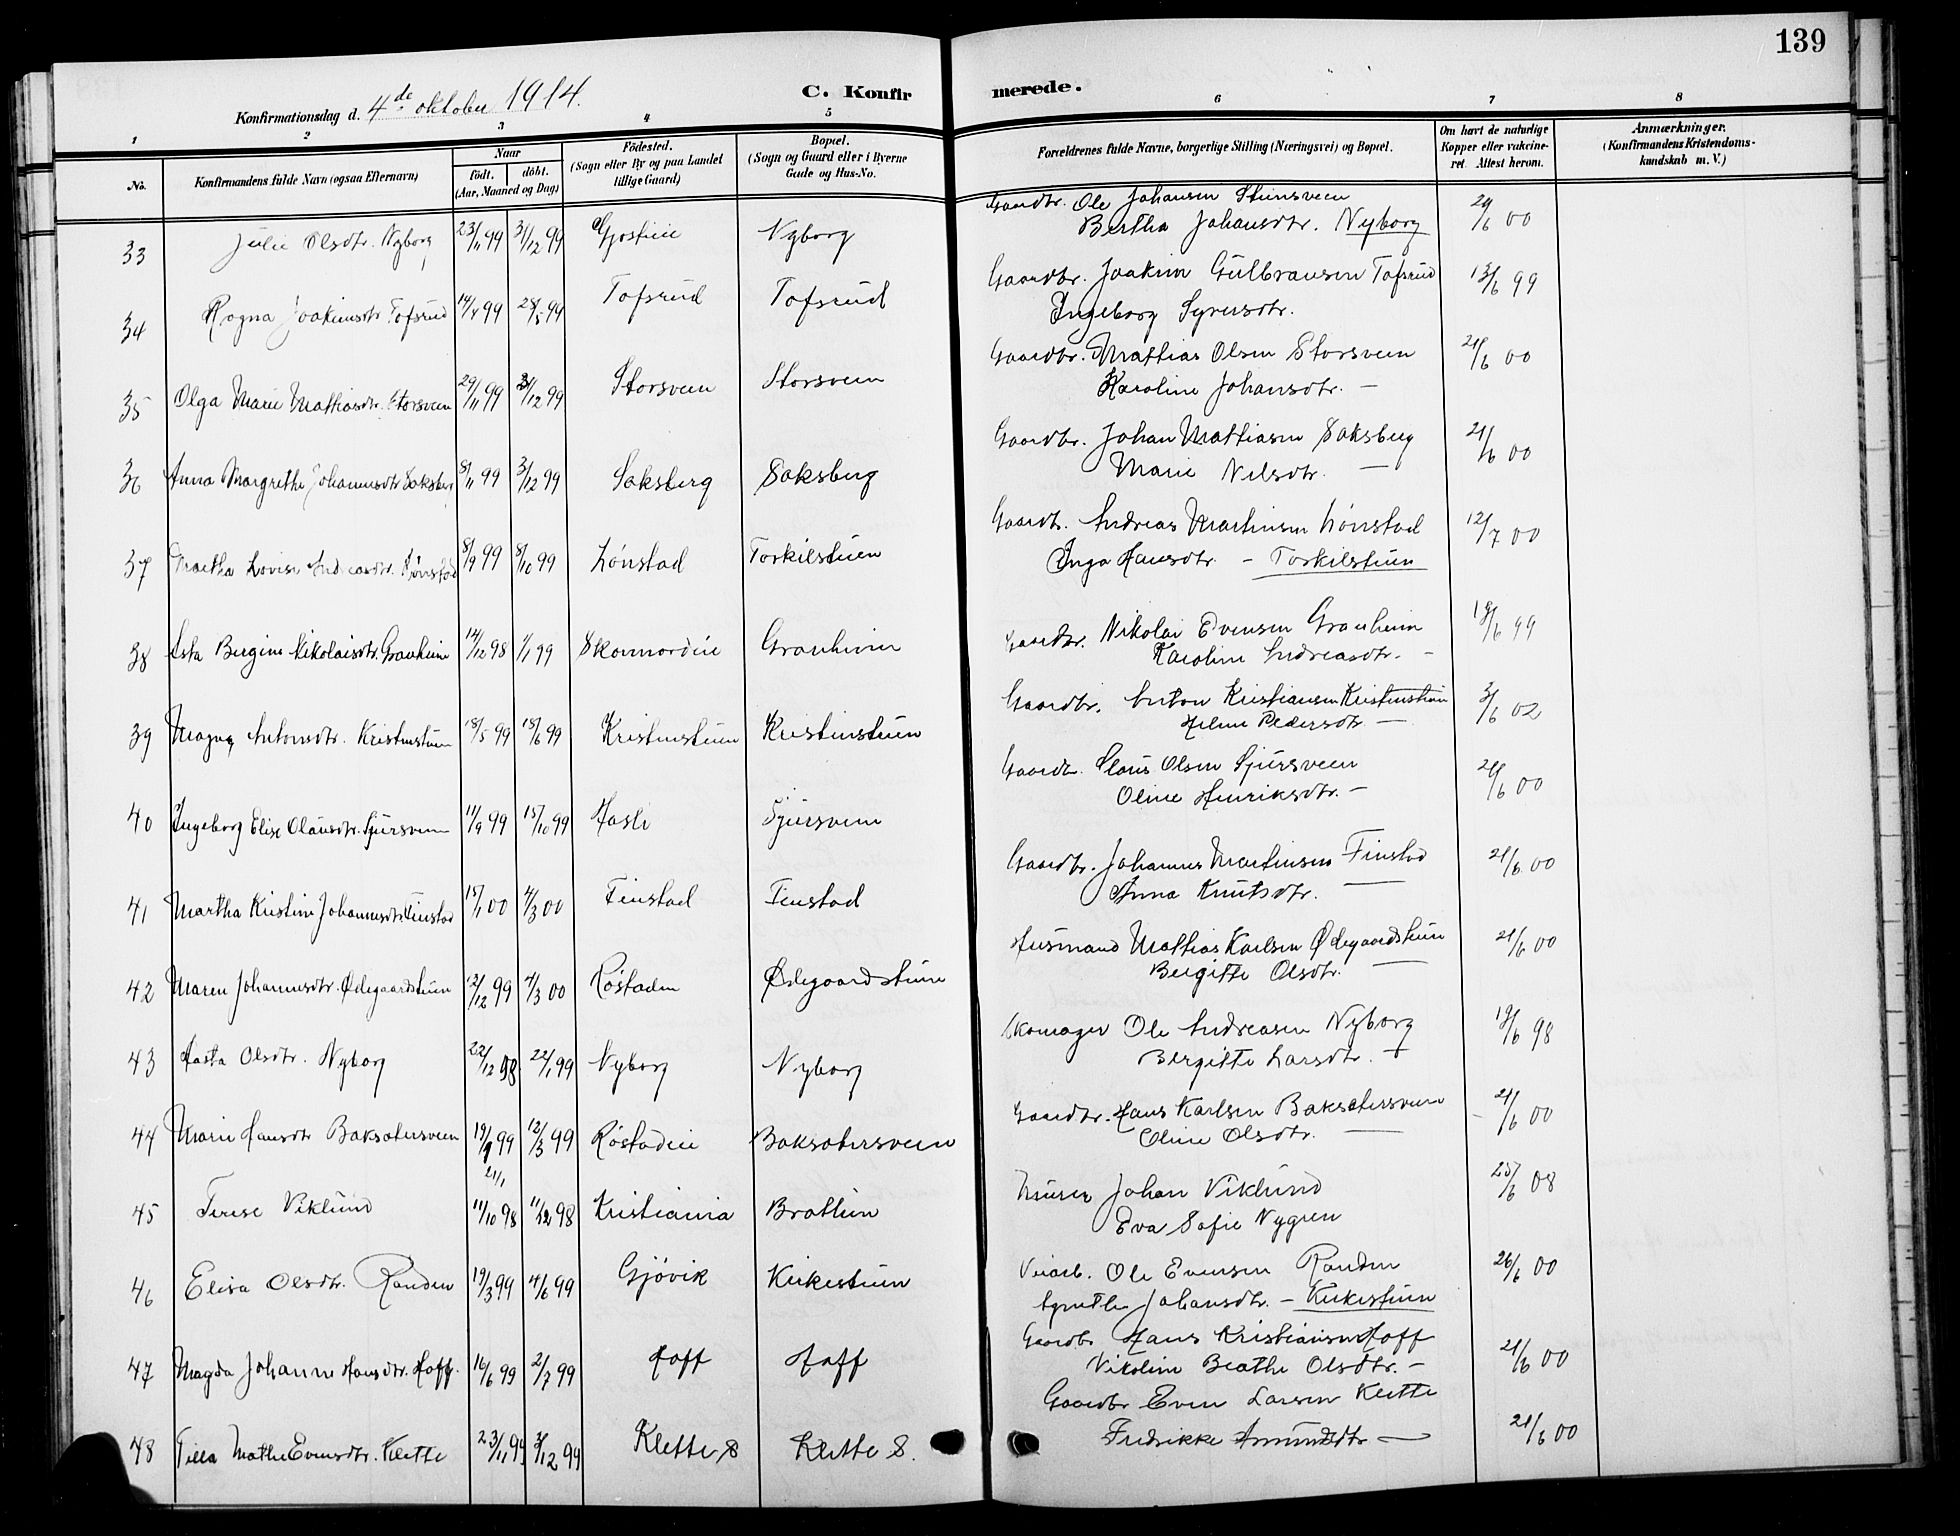 139
C. Konfirmerede.
Konfirmationsdag d. 4de oktober 1914.
1 2 3 4 5 6 7 8
No. Konfirmandens fulde Navn (ogsaa Efternavn) Naar født. døbt. (Aar, Maaned og Dag) Fødested. (Sogn eller By og paa Landet tillige Gaard) Bopæl. (Sogn og Gaard eller i Byerne Gade og Hus-No. Forældrenes fulde Navne, borgerlige Stilling (Næringsvei) og Bopæl. Om havt de naturlige Kopper eller vakcineret. Attest herom. Anmærkninger. (Konfirmandens Kristendomskundskab m. V.)
33 Julie Olsdtr. Nyborg 23/11 99 31/12 99 Nyborg Gaardbr. Ole Johansen
Bertha Johansdtr. Nyborg 00
34 Ragna Joakimsdtr Tofsrud 14/4 99 28/5 99 Tofsrud Tofsrud Gaardbr. Joakim Gulbransen Tofsrud 13/6 99
Ingeborg Syversdtr.
35 Olga Marie Mathiasdtr. Storsveen 29/11 99 31/12 99 Storsveen Storsveen Gaardbr. Mathias Olsen Storsveen 21/6 00
Karoline Johansdtr. —
36 Anna Margrethe Johannesdtr Saksberg 8/11 99 3/12 99 Saksberg Saksberg Gaardbr. Johan Mathiasen Saksberg 21/6 00
Marie Nilsdtr. —
37 Lovise Andreasdtr. Lønstad 8/9 99 8/10 99 Lønstad Torkilstuen Gaardbr. Andreas Martinsen Lønstad 12/7 00
Inga Hansdtr. – Torkilstuen
38 Asta Bergine Nikolaisdtr. Granheim 14/12 98 1/1 99 Granheim Gaardbr. Nikolai Evensen Granheim 19/6 99
Karoline Andreasdtr. –
39 Magna Antonsdtr. Kristinstuen 18/5 99 18/6 99 Kristinstuen Kristinstuen Gaardbr. Anton Kristiansen Kristinstuen 3/6 02
Helene Pedersdtr —
40 Ingeborg Elise Olausdtr. Sjursveen 11/9 99 15/10 99 Hasli Sjursveen Gaardbr. Olaus Olsen Sjursveen 21/6 00
Oline Henriksdtr. –
41 Martha Kristine Johannesdtr Finstad 15/1 00 4/3 00 Finstad Finstad Gaardbr. Johannes Martinsen Finstad 21/6 00
Anna Knutsdtr. —
42 Maren Johannesdtr. Ødegaardstuen 12/12 99 4/3 00 Røstaden Ødegaardstuen Husmand Mathias Karlsen Ødegaardstuen 21/6 00
Bergitte Olsdtr. —
43 Hasta Olsdtr. Nyborg 22/12 98 22/1 99 Nyborg Nyborg Skomager Ole Andreasen Nyborg 19/6 98
Bergitte Larsdtr. –
44 Marie Hansdtr Baksætersveen 19/1 99 12/3 99 Røstadeie Baksætersveen Gaardbr. Hans Karlsen Baksætersveen 21/6 00
Oline Olsdtr. —
21/1
45 Terese Viklund 11/10 98 11/12 98 Kristiania Bratlien Murer Johan Viklund 25/6 08
Eva Sofie Nygren
46 Elisa Olsdtr. Randen 19/3 99 4/6 99 Gjøvik Kirkestuen Veiarb. Ole Evensen Randen 26/6 00
Agnethe Johansdtr. – Kirkestuen
47 Magda Johanne Hansdtr. Hoff. 16/6 99 2/7 99 Hoff Hoff Gaardbr Hans Kristiansen Hoff 21/6 00
Nikoline Beathe Olsdtr. –
48 Tilla Mathea Evensdtr. Klette 23/11 99 31/12 99 Klette S Klette S. Gaardbr Even Larsen Klette 21/6 00
Fredrikke Amundsdtr —